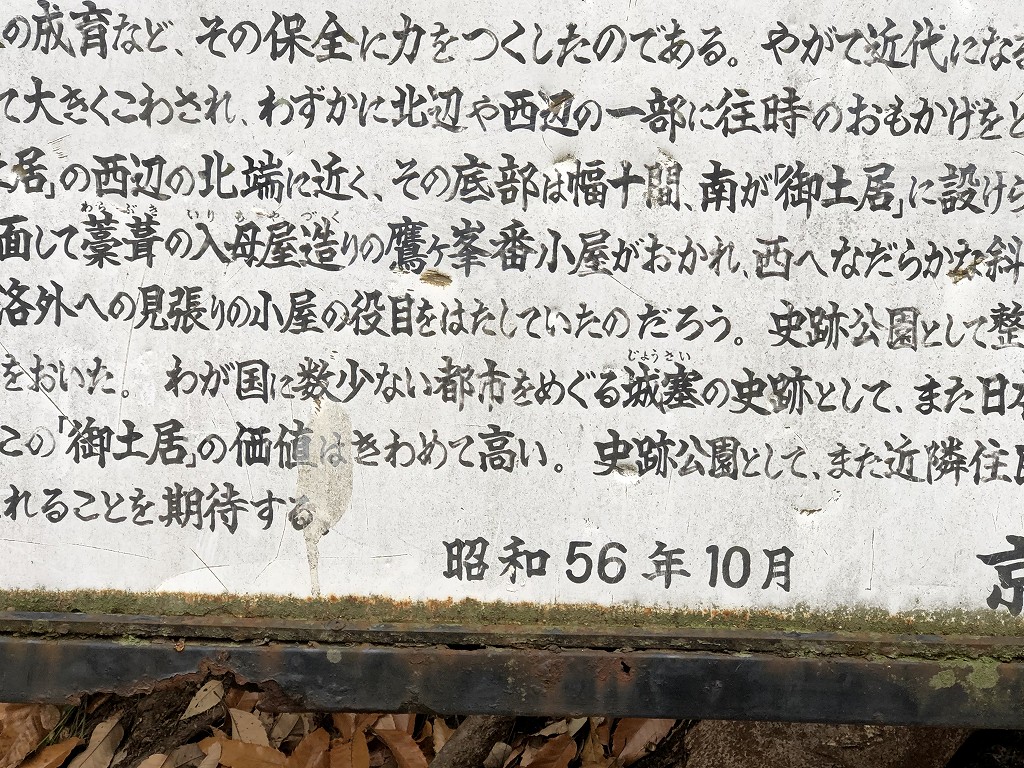 の成育など、その保全に力をつくしたのである。やがて近代になる
て大きくこわされ、わずかに北辺や西辺の一部に往時のおもかげをと
居」の西辺の北端に近く、その底部は幅十間、南が「御土居」に設けら
わらぶき いりもやづくり
面して藁葺の入母屋造りの鷹ヶ峯番小屋がおかれ、西へなだらかな斜
洛外への見張りの小屋の役目をはたしていたのだろう。史跡公園として整
じょうさい
をおいた。わが国に数少ない都市をめぐる城塞の史跡として、また日本
この「御土居」の価値はきわめて高い。史跡公園として、また近隣住民
れることを期待する。
昭和56年10月
京